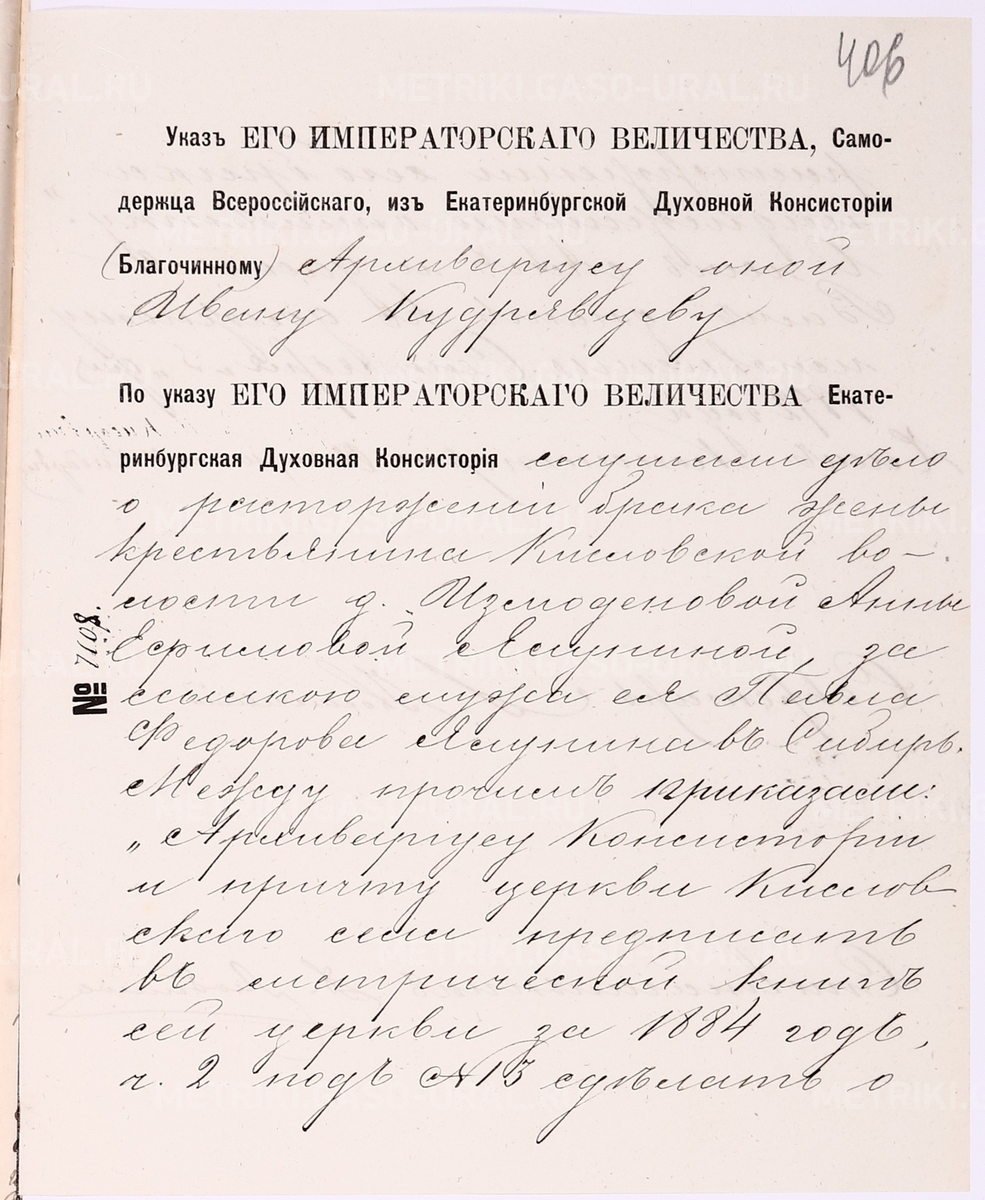 406
Указъ ЕГО ИМПЕРАТОРСКАГО ВЕЛИЧЕСТВА, Само-
держца Всероссійскаго, изъ Екатеринбургской Духовной Консисторіи
(Благочинному) Архиваріусу оной
Ивану Кудрявцеву
По указу ЕГО ИМПЕРАТОРСКАГО ВЕЛИЧЕСТВА Екате-
ринбургская Духовная Консисторія слушали дѣло
о расторженіи брака жены
крестьянина Кисловской во-
лости д. Измоденовой Анны
Ефимовой Ялуниной, за
ссылкою мужа ея Павла
Федорова Ялунина въ Сибирь.
Между прочимъ приказали:
„Архиваріусу Консисторіи
и причту церкви Кислов-
скаго села предписать
въ метрической книгѣ
сей церкви за 1884 годъ,
ч. 2 подъ №13 сдѣлать о
№ 7108.
METRIKI.GASO-URAL.RU